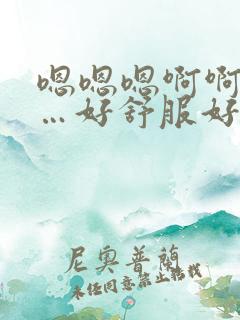 嗯嗯嗯啊啊
…好舒服好
尼奥普蘭
未经同意禁止转载